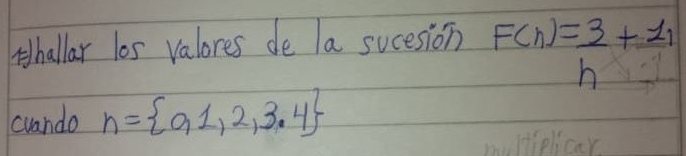 1)hallar los valores de la sucesión F(n)=3/n + 1,
cuando n={0,1,2,3.4}
multiplicar